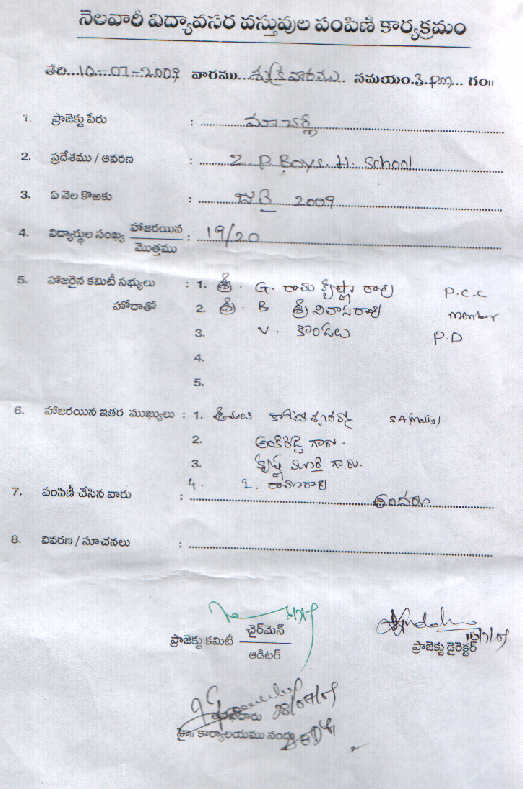 నెలవారీ విద్యావసర వస్తువుల పంపిణి కార్యక్రమం
తేది.10-07-2009 వారము. శుక్రవారము సమయం.3.pm గం॥
1. ప్రాజెక్టు పేరు :
2. ప్రదేశము / ఆవరణ : Z. P. Boys. H. School
3. ఏ నెల కొఱకు : జులై 2009
4. విద్యార్థుల సంఖ్య హాజరయిన / మొత్తము : 19/20
5. హాజరైన కమిటీ సభ్యులు : 1. శ్రీ. G. రామకృష్ణ రావు P.C.C
హోదాతో 2. శ్రీ. B. శ్రీనివాసరావు member
3. V. కొండలు P.D
4.
5.
6. హాజరయిన ఇతర ముఖ్యులు : 1. శ్రీమతి SA(Maths)
2. అంకిరెడ్డి గారు.
3. గారు.
4.
7. పంపిణీ చేసిన వారు : అందరు
8. వివరణ / సూచనలు :
ప్రాజెక్టు కమిటీ ఛైర్‌మన్ / ఆడిటర్
ప్రాజెక్టు డైరెక్టర్
28/07/09
కార్యాలయము